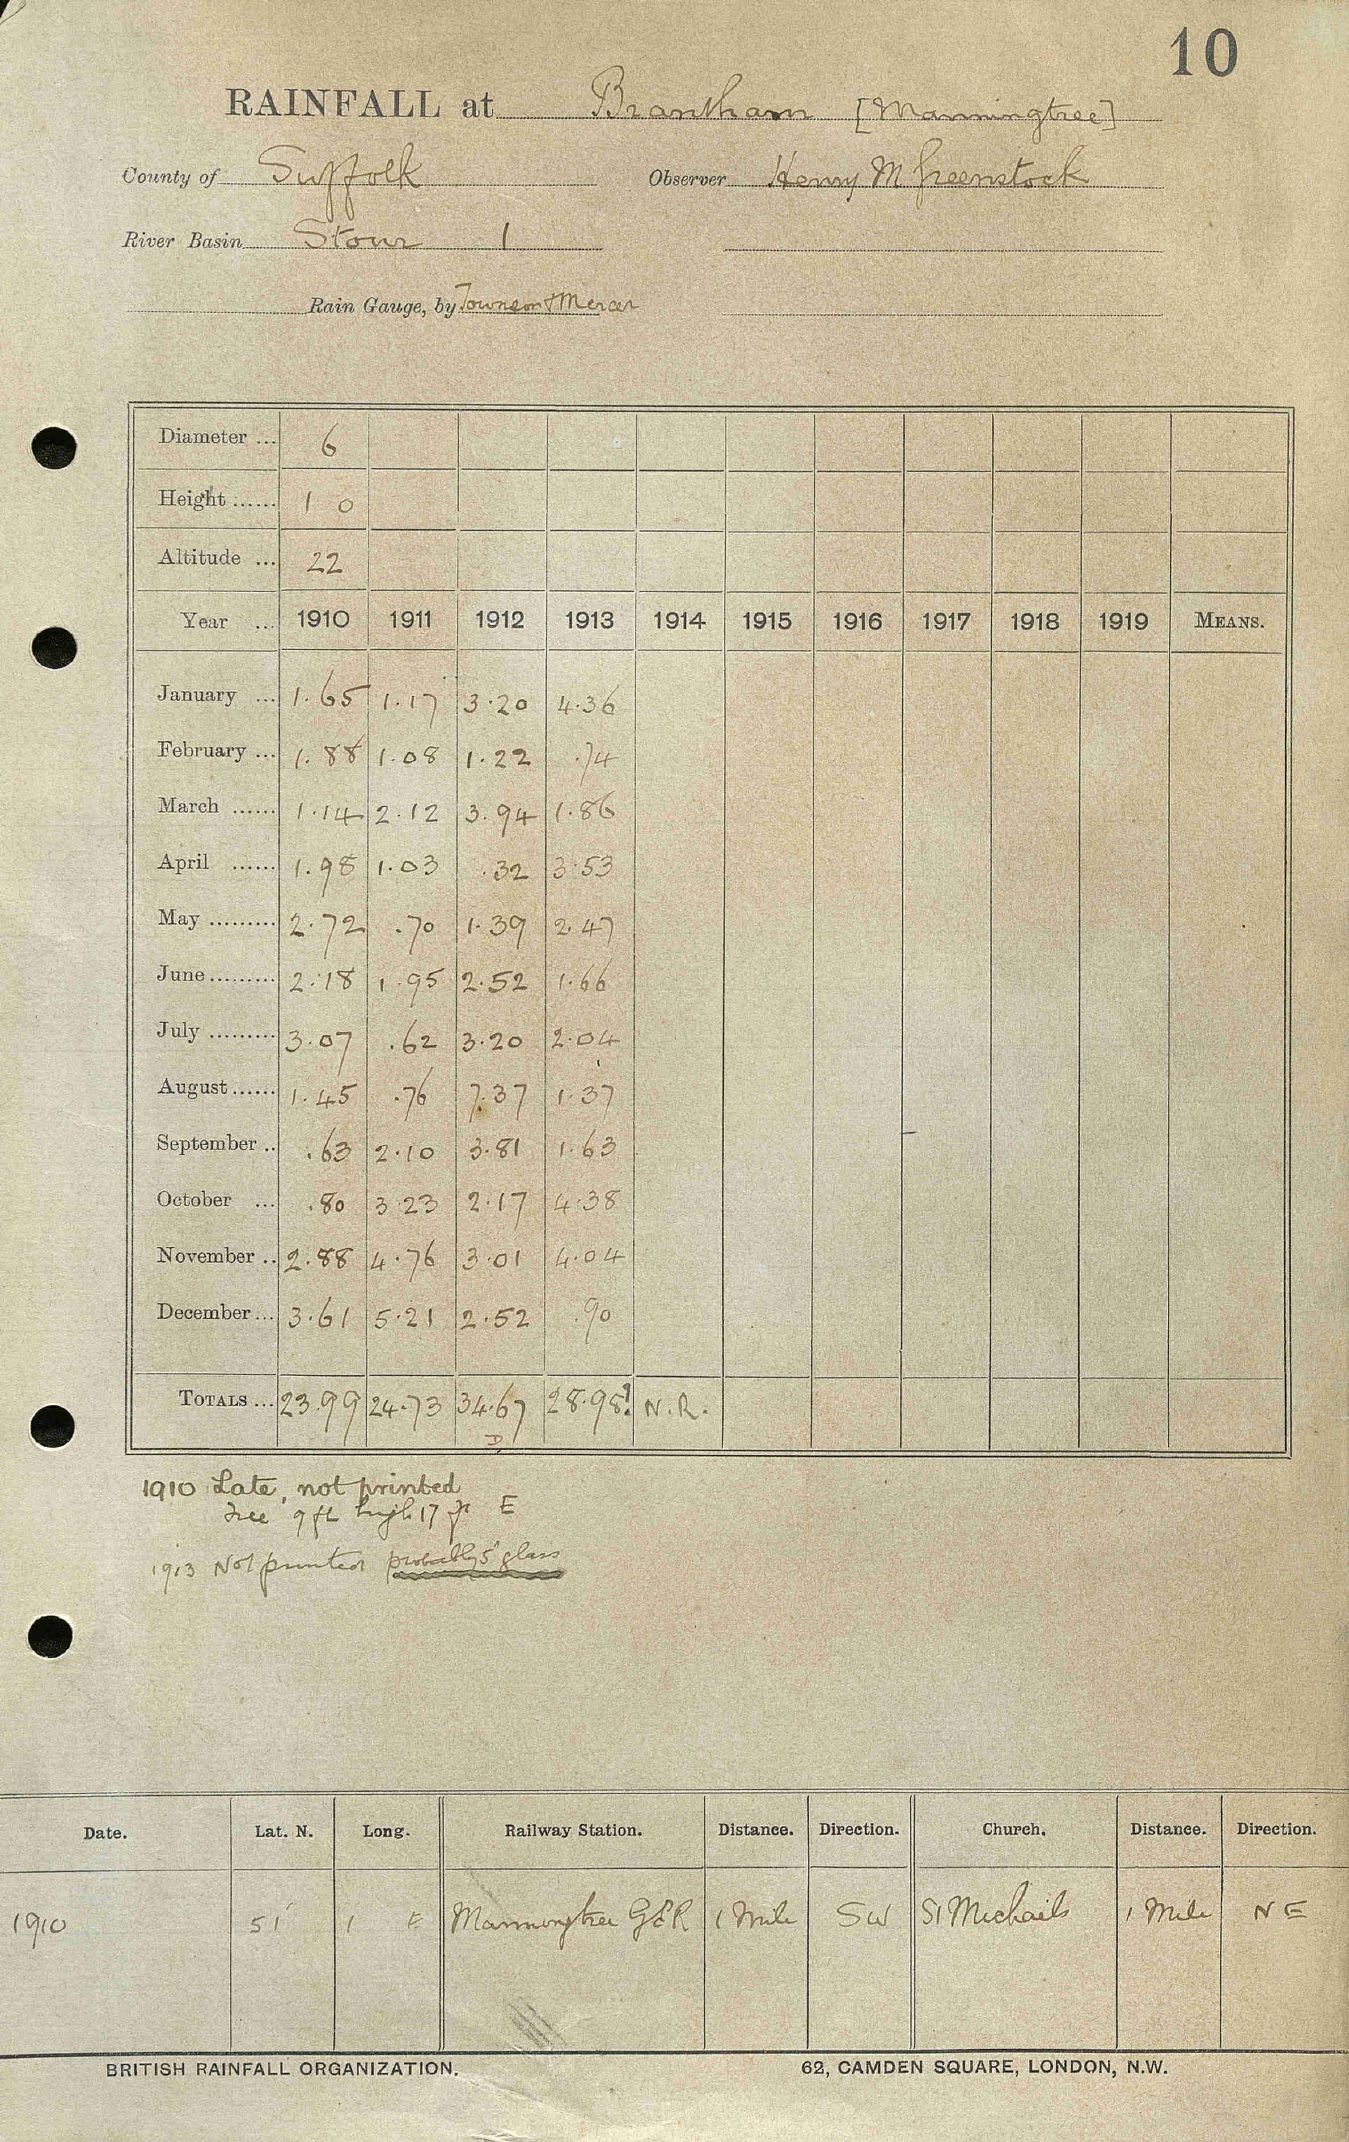 10
RAINFALL at Brantham [Manningtree]
County of Suffolk Observer Henry M Greenstock
River Basin Stour 1
Rain Gauge, by Townson & Mercer
Diameter ... 6
Height ...... 1 0
Altitude ... 22
Year ... 1910 1911 1912 1913 1914 1915 1916 1917 1918 1919 MEANS.
January ... 1.65 1.17 3.20 4.36
February ... 1.88 1.08 1.22 .74
March ...... 1.14 2.12 3.94 1.86
April ...... 1.98 1.03 .32 3.53
May ......... 2.72 .70 1.39 2.47
June ......... 2.18 1.95 2.52 1.66
July ......... 3.07 .62 3.20 2.04
August ...... 1.45 .76 7.37 1.37
September .. .63 2.10 3.81 1.63
October ... .80 3.23 2.17 4.38
November .. 2.88 4.76 3.01 4.04
December ... 3.61 5.21 2.52 .90
TOTALS ... 23.99 24.73 34.67 28.98? N.R.
D
1910 Late, not printed
Tree 9 ft high 17 ft E
1913 Not printed probably 5" glass
Date. Lat. N. Long. Railway Station. Distance. Direction. Church. Distance. Direction.
1910 51 1 E Manningtree GER 1 Mile SW St Michaels 1 Mile NE
BRITISH RAINFALL ORGANIZATION. 62, CAMDEN SQUARE, LONDON, N.W.